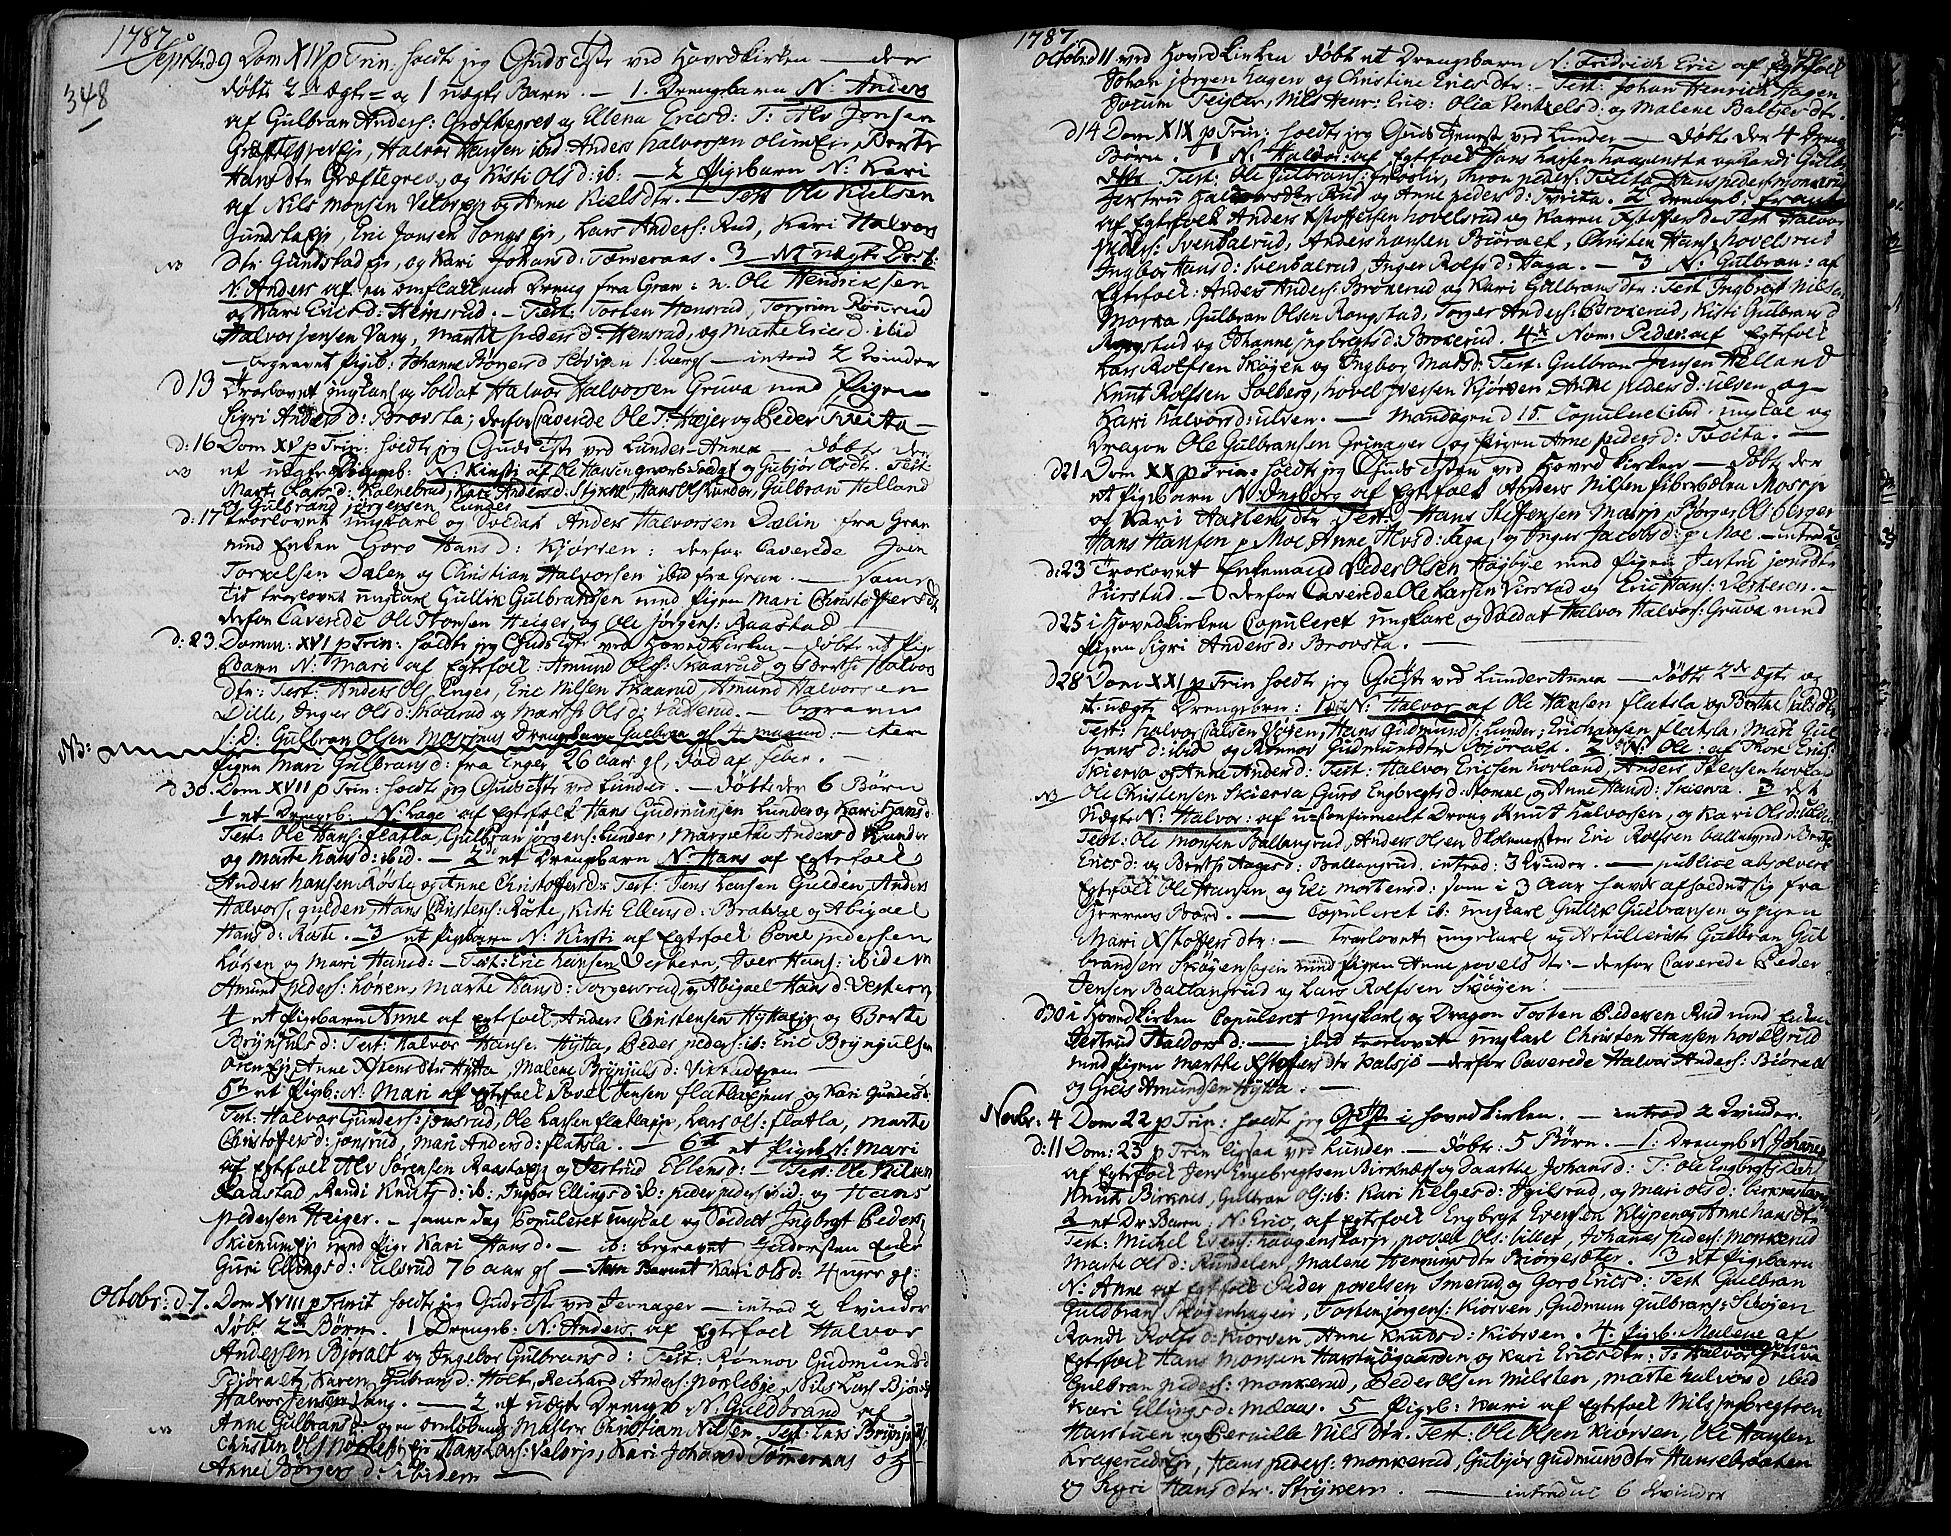 1787
348
Septbr d 9 Dom XIV p Trin: holdt jeg Guds tste ved Hovedkirken — der
døbte 2 ægte= og 1 uægte Barn. — 1. Drengebarn N: Anders
af Gulbran Anders: Græftegrev og Ellena Ericsd: T: Alv Jonsen
Græftegrev Ejr, Halvor Hansen ibid Anders Halvorsen Berte
Hans dtr Græftegrev, og Kisti Ols d: ib: — 2 Pigebarn N: Kari
af Nils Monsen Velorpp og Anne Nielsdtr. — Test Ole Nielsen
Gundstadejr, Eric Jonsen, Lars Anders: Rud, Kari Halvors
dtr: Gundstadejr, og Kari Johans d: Tømeraas. 3 Et uægte Dreb:
N: Anders af en omflakkende Dreng fra Gran: n. Ole Hendriksen
og Kari Ericsd: Hensrud. — Test: Torsten Hensrud, Torgrim Rønnerud
Halvor Jensen Vang, Marthe Peders d: Hensrud, og Marte Erics d: ibid
— begravet Pigeb: Johanne Børgers d — introd 2 Qvinder
d 13 Trolovet Ungkarl og Soldat Halvor Halvorsen Gruva med Pigen
Sigri Anders d: Brovsta; derfor Caverede Ole T: Høyer og Peder Tveita —
d: 16 Dom XV p Trin: holdt jeg Guds tste ved Lunder Annex — døbte der
NB et uægte Pigeb: N: Kirsti af Ole Hansen Soldat og Gubjør Olsdtr. Test.
Marte Lars d: Kalnebrud, Kari Anders d: Stykne, Hans Ols: Lunder, Gulbran Helland
og Gulbrand Jørgensen Lunder
d: 17 trolovet Ungkarl og Soldat Anders Halvorsen Dælin fra Gran
med Enken Goro Hans d: Kjørven: derfor Caverede Joen
Torkelsen Dalen og Christian Halvorsen ibid fra Gran. — samme
tid trolovet Ungkarl Gullik Gulbrandsen med Pigen Mari Christoffers dtr
derfor Caverede Ole Tronsen Heiger, og Ole Jørgens: Raastad —
d: 23. Domin: XVI p Trin: holdt jeg Guds tste ved Hovedkirken — døbte et Pige
Barn N: Mari af Egtefolk Amund Ols: Skaarud og Berthe Halvors
dtr: Test: Anders Ols Enger, Eric Nilsen Skaarud, Amund Halvorsen
Dille, Inger Ols d: Skaarud og Marthe Ols d: — begraven
NB: s: D: Gulbran Olsen Moesens Drengebarn Gulbran gl 4 maand: — item
Pigen Mari Gulbrans d: fra Enger 26 aar gl. død af Feber. —
d 30. Dom XVII p Trin: holdt jeg Guds tste ved Lunder. — døbte der 6 Børn
1 et Drengeb: N: Aage af Egtefolk Hans Gudmunsen Lunder og Kari Hans d:
Test: Ole Hans: Flatla, Gulbran Jørgens: Lunder, Margrethe Anders d Lunder
og Marte Hans d: ibid. — 2 et Drengebarn N: Hans af Egtefolk
Anders Hansen Røste og Anne Christoffers d: Test: Jens Larsen Gulden, Anders
Halvors: Gulden, Hans Christens: Røste, Kisti Ellens d: Bratvol og Abigael
Hans d: Røste. 3 et Pigebarn N: Kirsti af Egtefolk Povel Pedersen
Løken og Mari Hansd: — Test: Eric Hansen Vestern, Iver Hans: ibidem
Amund Peders: Løken, Marthe Hans d: Torgersrud, og Abigael Hans d: Vestern,
4 et Pigebarn Anne af Egtefolk Anders Christensen Hyttaejr og Berte
Brynjuls d: Test: Halvor Hanse. Hytta, Peder Peders: ib: Eric Brynjulsen
Oren Ejr Anne Xstens dtr Hytta, Malene Brynjuls d:
5te et Pigeb: N: Mari af Egtefolk Povel Jensen Flatla ejr og Kari Gunders d:
Test: Halvor Gunders: Jonsrud, Ole Larsen Flatlaejr, Lars Ols: Flatla, Marte
Christoffers d: Jonsrud, Mari Anders d: Flatsla. — 6te et Pigeb. N: Mari
af Egtefolk Alv Sørensen Raastadejr og Jertrud Ellens d: — Test: Ole Nilsen
Raastad, Randi Knuts d: ib: Ingbor Ellings d ib: Peder Peders ibid: og Hans
Pedersen Heiger. — samme Dag Copuleret Ungkal og Soldat Ingbregt Peders:
Skiennum ejr med Pige Kari Hans d. — ib: begravet Jndersten Enke
Guri Ellings d: Ulsrud 76 aar gl — item Barnet Kari Ols d: 4 uger gl:
Octobr: d 7. Dom XVIII p Trinit holdt jeg Gudstste ved Jevnager — introd 2 Qvinder
døbt 2de Børn. 1 Drengeb: N: Anders af Egtefolk Halvor
Andersen Bjøralt og Ingebor Gulbrans d: Test: Rønnov Gudmunds d
Bjøralt, Karen Gulbrans d: Holt, Richard Anders: Nordeby, Nils Lars: Bjøralt
Halvor Jensen Vang. — 2 et uægte Drengeb N: Guldbrand af
NB Anne Gulbrans d og en omløbende Maler Christian Nilsen. Test: Lars Brynjuls:
Christen Ols Nordeby ejr Hans Lars: Velorp, Kari Johans d Tømeraas og
Anne Børgers d: ibidem —

1787
Octob: d 11 ved Hovedkirken døbt et Drengebarn N: Fridrich Eric af Egtefolk
Johan Jørgen Hagen og Christine Ericsdtr: — Test: Johan Henrich Hagen
Jocum Teigler, Nils Henr: Eric: Olia Ventzelsd: og Malene Baltzers dtr.
d 14 Dom XIX p Trin: holdt jeg Guds Tjenest ved Lunder — døbte der 4 Drenge
Børn. 1 N: Halvor af Egtefolk Hans Larsen Haagensta og Randi Gulbr:
dtr Test: Ole Gulbrans: Froslie, Tron Peders: Tveita, Hans Peders Monkerud
Jertru Haldors dtr Rud og Anne Peders d: Tveita. 2 Drengeb: Frants
af Egtefolk Anders Xstoffersen Hovelsrud og Karen Xstoffers d: Test Halvor
Mads: Svendalrud, Anders Hansen Bjøralt, Christen Hans: Hovelsrud
Ingbor Hans d: Svendalrud, Inger Rolfs d: Haga. — 3 N: Gulbran: af
Egtefolk: Anders Anders: Brokerud og Kari Gulbransdtr: Test Ingbregt Nilsen
Morka, Gulbran Olsen Rongstad, Torger Anders: Brokerud, Kisti Gulbrans d
Rongstad og Johanne Ingbregts d: Brokerud. 4de Nom: Peder af Egtefolk
Lars Rolfsen Skøyen og Ingbor Mads d: Test: Gulbran Jensen Helland
Knut Rolfsen Solberg, Hovel Iversen Kjørven Anne Peders d: Ulsen, og
Kari Halvors d: Ulsen. — Mandagen d 15 Copuleret ibid. Ungkal og
Dragon Ole Gulbransen Grinager og Pigen Anne Peders d: Tveita. —
d 21 Dom XX p Trin: holdt jeg Guds tsten ved Hovedkirken — døbte der
et Pigebarn N: Ingborg af Egtefolk Anders Nilsen Moesp
og Kari Aastens dtr: Test: Hans Steffensen Moesp, Børger Ols Berger
Hans Hansen p Moe, Anne Alvs d: Haga, og Inger Jacobs d: p Moe. — introd 2 Qv
d: 23 Trolovet Enkemand Peder Olsen Høybye med Pigen Jertru Jonsdtr
Hurstad. — derfor Caverede Ole Larsen Virstad og Eric Hans: Vesteren. —
d 25 i Hovedkirken Copuleret Ungkarl og Soldat Halvor Halvors: Gruva med
Pigen Sigri Anders d: Brovsta. —
d 28 Dom XXI p Trin holdt jeg Gudstste ved Lunder Annex — døbte 2de ægte og
1 uægte Drengebørn: 1 N: Halvor af Ole Hansen Flatsla og Berthe
Test: Halvor Olsen Vøien, Hans Gudmunds: Lunder, Eric Hansen Flatsla, Mari Gul
brans d: ibid og Rønnov Gudmunsdtr Bjøralt. 2 N: Ole: af Tore Erics:
Skierva og Anne Anders d: Test: Halvor Ericsen Hovland Anders Steensen Hovland
NB Ole Christensen Skierva Guro Engbregts d: Stomne, og Anne Hans d: Skierva. 3 det
Uægte N: Halvor: af u=Confirmert Dreng Knut Halvorsen, og Kari Ols d:
Test: Ole Monsen Ballangrud, Anders Olsen Skolemester Eric Rolfsen Ballangrud
Erics d: og Berthe Aages d: Ballangrud. introd: 3 Qvinder. — publice absolvert
Egtefolk Ole Hansen og Eli Mortens d: som i 3 Aar havde afholdet sig fra
Herrens Bord. — Copuleret ib: Ungkarl Gullik Gulbransen og Pigen
Mari Xstoffers dtr: — Trolovet Ungkarl og Artillerist Gulbran Gul
brandsen Skøyenhagen med Pigen Anne Povels dtr — derfor Caverede Peder
Jensen Ballangrud og Lars Rolfsen Skøyen: —
d 30 i Hovedkirken Copuleret Ungkarl og Dragon Tosten Pedersen Rud med Enken
Jertrud Haldors d: — ibid trolovet Ungkarl Christen Hansen Hovelsrud
med Pigen Marthe Xstofers dtr Kalsjø — derfor Caverede Halvor Anders: Bjøralt
og Gudb Amundsen Hytta. —
Novbr. 4 Dom 22 p Trin: holdt jeg Gtste i Hovedkirken. — introd 2 Qvinder.
d: 11 Dom: 23 p Trin ved Lunder. — døbt: 5 Børn. — 1: Drengeb N: Johannes
af Egtefolk Jens Engebregtsen Birknæs og Daarthe Johans d: T: Ole Engbregts: Dahl
Knut Birknes, Gulbran Ols: ib: Kari Helges d: Igilsrud, og Mari Ols d:
2 et Dr: Barn: N: Eric, af Egtefolk Engbregt Evensen Klypen og Anne Hansdtr
Test: Michel Evens: Haagenstadejr, Povel Ols: Lilier, Johanes Peders: Monkerud
Marte Ols d: Rundelen, Malene Hemmins dtr Bjørgesæter. 3 et Pigebarn
N: Anne af Egtefolk Peder Povelsen Smerud og Goro Erics d: Test Gulbran
Guldbrans Skøgenhagen, Tosten Jørgens: Kiørven, Gudmun Gulbrans: Skøjen
Randi Rolfs d: Kiørven, Anne Knuts d: Kiørven. 4. Pigeb. Malene af
Egtefolk Hans Monsen Harestuogaarden og Kari Ericsdtr: T: Halvor Halvorsen Gruva
Gulbran Peders: Monkerud, Peder Olsen Nilsten, Marte Halvors d ibid
Kari Ellings d: Mælaas. 5 Pigeb: Kari af Egtefolk Nils Ingbregtsen
Harstuen og Pernille Nils dtr. Test: Ole Olsen Kiørven, Ole Hansen
Kragerud ejr, Hans Peders: Monkerud, Gubjør Gudmunsdtr Hansebraaten
og Sigri Hans dtr. Stryken. — introduc 6 Qvinder